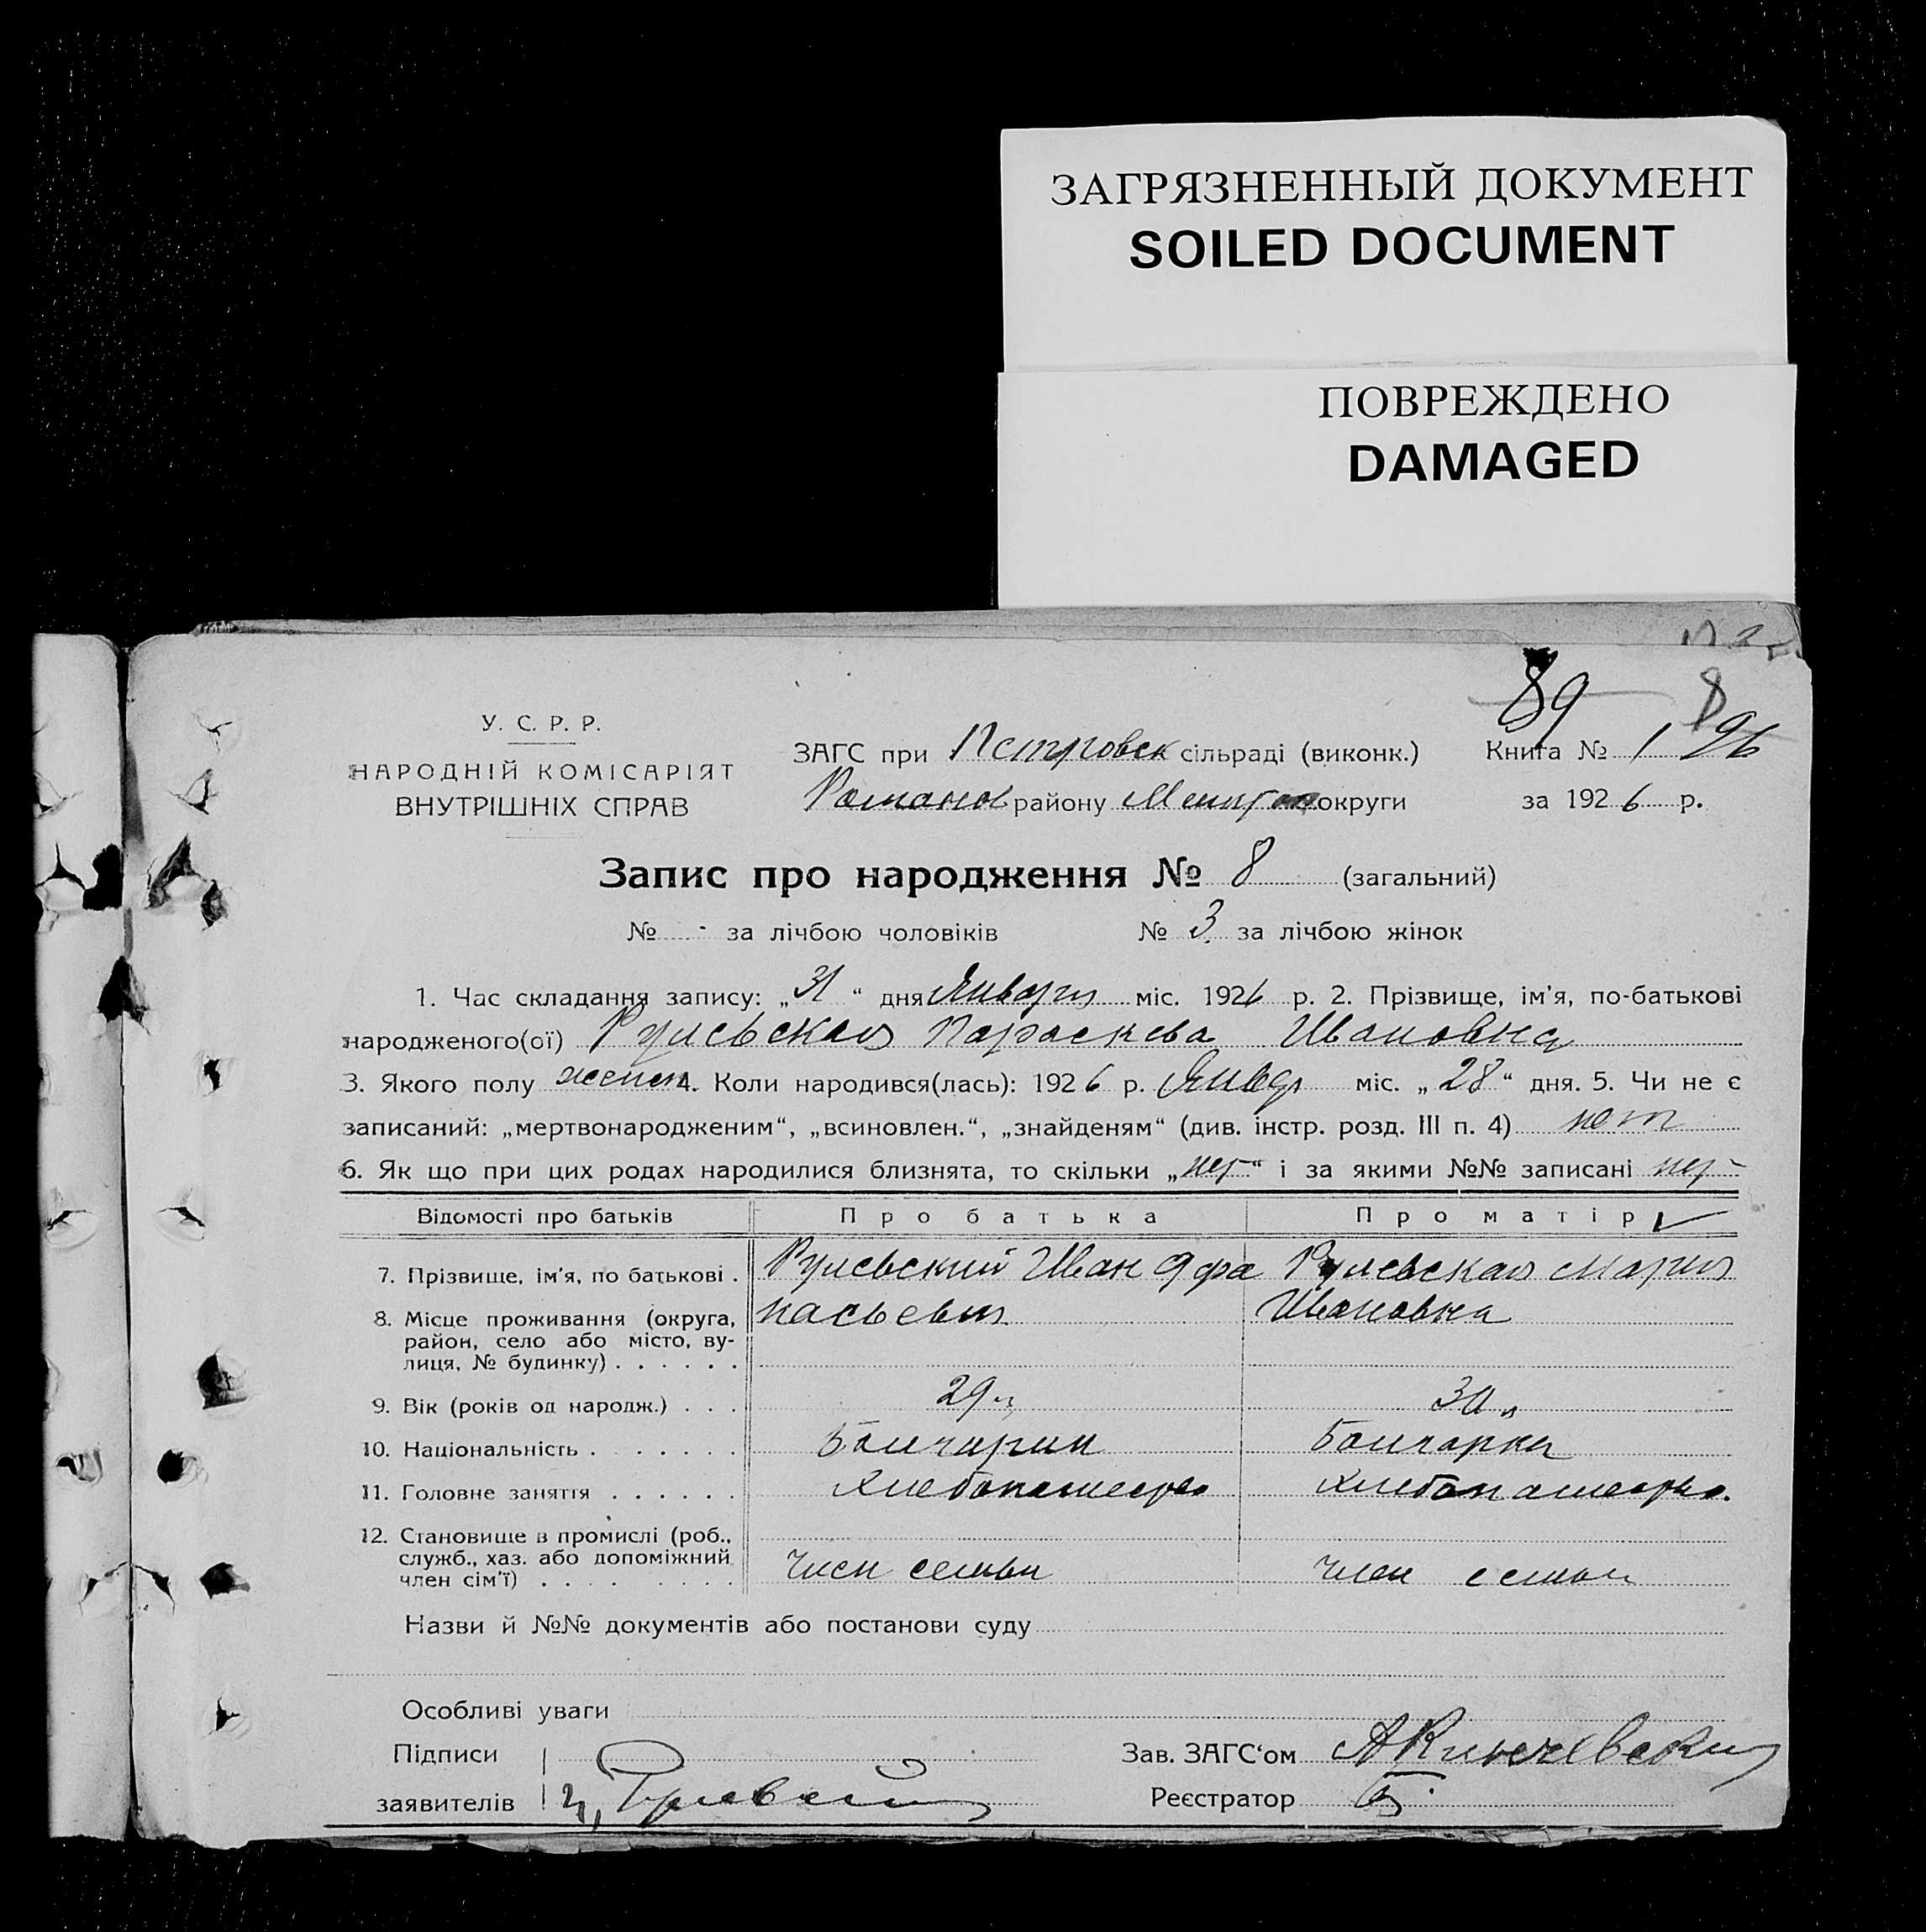 ЗАГРЯЗНЕННЫЙ ДОКУМЕНТ
SOILED DOCUMENT
ПОВРЕЖДЕНО
DAMAGED
89 8
У. С. Р. Р.
НАРОДНІЙ КОМІСАРІЯТ
ВНУТРІШНІХ СПРАВ
ЗАГС при Петровск сільраді (виконк.) Книга № 1 96
Романов району Мелитоп округи за 1926 р.
Запис про народження № 8 (загальний)
№ - за лічбою чоловіків № 3 за лічбою жінок
1. Час складання запису: „31“ дня Января міс. 1926 р. 2. Прізвище, ім'я, по-батькові
народженого(ої) Рулевская Параскева Ивановна
3. Якого полу женск 4. Коли народився(лась): 1926 р. Январ міс. „28“ дня. 5. Чи не є
записаний: „мертвонародженим“, „всиновлен.“, „знайденям“ (див. інстр. розд. III п. 4) нет
6. Як що при цих родах народилися близнята, то скільки „нет“ і за якими №№ записані нет
Відомості про батьків Про батька Про матір
7. Прізвище, ім'я, по батькові . Рулевский Иван Афа Рулевская Мария
8. Місце проживання (округа, насьевич Ивановна
район, село або місто, ву-
лиця, № будинку) . . . . . .
9. Вік (років од народж.) . . . 29 л, 30 л
10. Національність . . . . . . Болгарин Болгарка
11. Головне заняття . . . . . . Хлебопашество Хлебопашество.
12. Становище в промислі (роб.,
служб., хаз. або допоміжний
член сім'ї) . . . . . . . . . член семьи член семьи
Назви й №№ документів або постанови суду
Особливі уваги
Підписи Зав. ЗАГС'ом
заявителів Рулевский Реєстратор